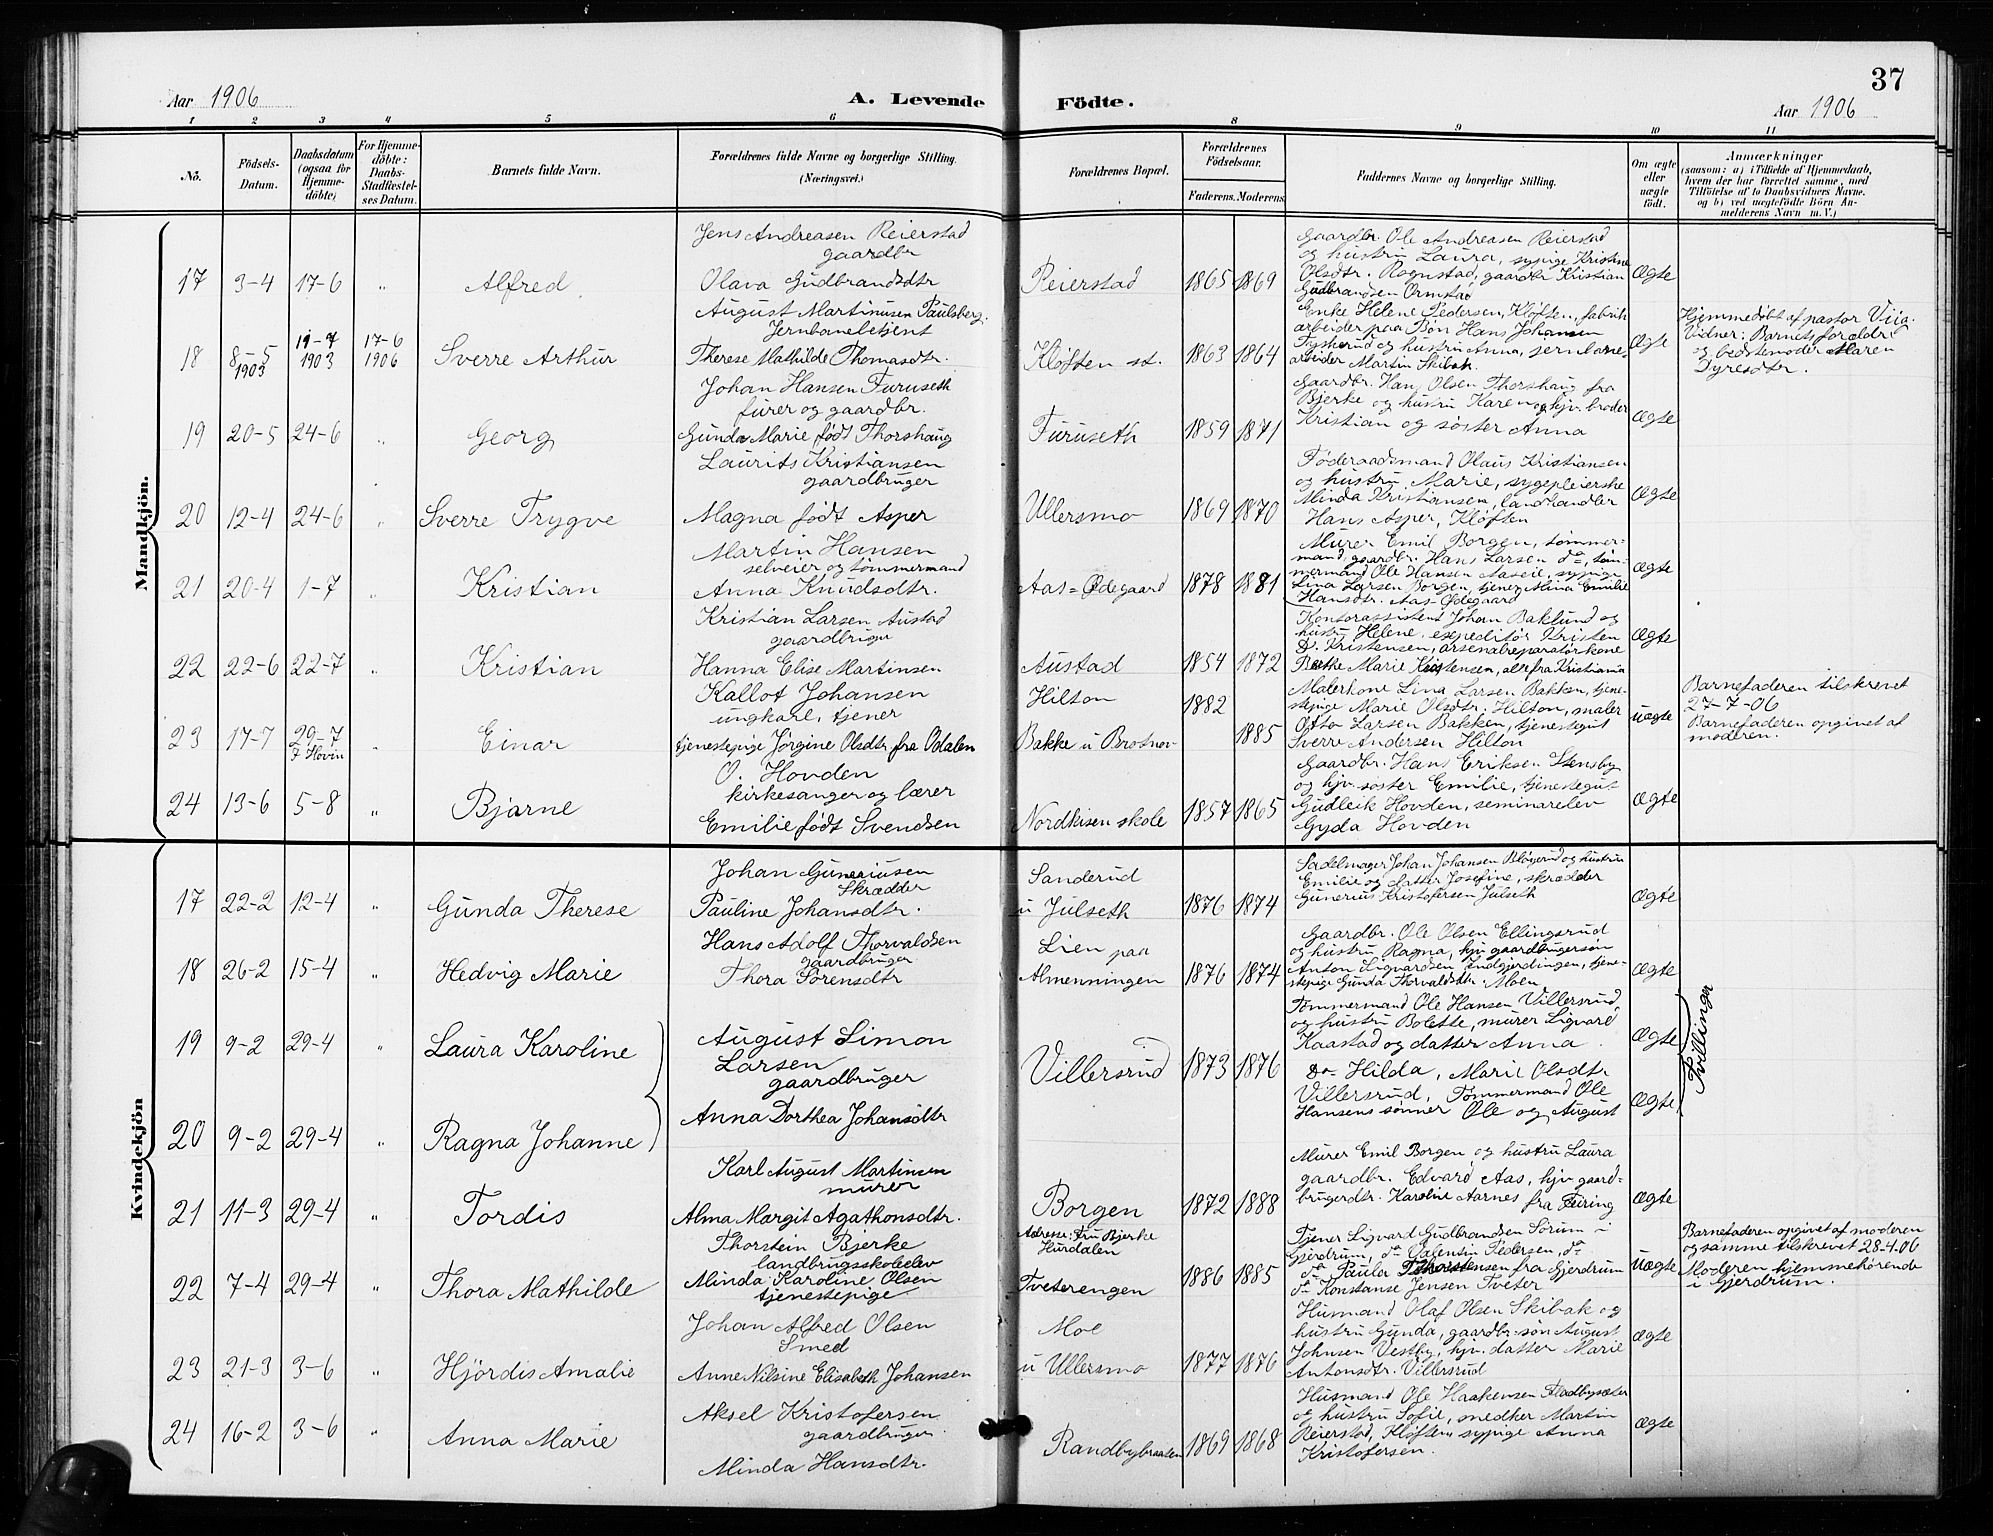 37
Aar 1906
A. Levende Födte.
Aar 1906
1 2 3 4 5 6 8 9 10 11
No.
Födsels-Datum.
Daabsdatum (ogsaa for Hjemmedöbte)
For Hjemmedöbte: Daabs-Stadfæstelses Datum.
Barnets fulde Navn.
Forældrenes fulde Navne og borgerlige Stilling. (Næringsvei.)
Forældrenes Bopæl.
Forældrenes Födselsaar.
Faderens. Moderens.
Faddernes Navne og borgerlige Stilling.
Om ægte eller uægte födt.
Anmærkninger
(saasom: a) i Tilfælde af Hjemmedaab, hvem der har forrettet samme, med Tilföielse af to Daabsvidners Navne. og b) ved uægtefödte Börn Anmelderens Navn m. V.)
Mandkjön.
17 3-4 17-6 " Alfred
Jens Andreasen Reierstad
gaardbr
Olava Gudbrandsdtr
Reierstad 1865 1869
Gaardbr. Ole Andreasen Reierstad
og hustru Laura, sypige Kristine
Olsdtr. Rognstad, gaardbr Kristian
Gudbrandsen Ormstad
Ægte
18 8-5 1903 19-7 1903 17-6 1906 Sverre Arthur
August Martinusen Paulsberg.
Jernbanebetjent
Therese Mathilde Thomasdtr.
Kløften st. 1863 1864
Enke Helene Pedersen, Kløften, fabrik
arbeider paa Bøn Hans Johansen
og hustru Anna, jernbane-
arbeider Martin Skibak.
Ægte
Hjemmedøbt af pastor
Vidner: Barnets forældre
og bedstemoder Maren
Dyresdtr.
19 20-5 24-6 " Georg
Johan Hansen Furuseth
furer og gaardbr.
Gunda Marie født Thorshaug
Furuseth 1859 1871
Gaardbr. Hans Olsen Thorshaug fra
Bjerke og hustru Karen, hjv. broder
Kristian og søster Anna
Ægte
20 12-4 24-6 " Sverre Trygve
Laurits Kristiansen
gaardbruger
Magna født Asper
Ullersmo 1869 1870
Föderaadsmand Olaus Kristiansen
og hustru Marie, sygepleierske
Minda Kristiansen, landhandler
Hans Asper, Kløften
Ægte
21 20-4 1-7 " Kristian
Martin Hansen
selveier og tømmermand
Anna Knudsdtr.
Aas=Ødegaard 1878 1881
Murer Emil Borgen, tømmer-
mand, gaardbr. Hans Larsen da, tøm-
mermand Ole Hansen Aaseie, sypige
Lina Larsen Borgen, tjener Alina Emilie
Hansdtr. Aas-Ødegaard
Ægte
22 22-6 22-7 " Kristian
Kristian Larsen Austad
gaardbruger
Hanna Elise Martinsen
Austad 1854 1872
Kontorassistent Johan Baklund og
hustru Helene, expeditør Kristen
D. Kristensen, arsenalreparatørkone
Berthe Marie Kristensen, alle fra Kristiania
Ægte
23 17-7 29-7 F Hovin " Einar
Kallot Johansen
ungkarl, tjener
tjenestepige Jørgine Olsdtr fra Odalen
Hilton 1882
Bakke u Brotnov 1885
Malerkone Lina Larsen Bakken, tjene-
stepige Marie Olsdtr. Hilton, maler
Otto Larsen Bakken, tjenestegut
Sverre Andersen Hilton
uægte
Barnefaderen tilskrevet
27-7-06
Barnefaderen opgivet af
moderen.
24 13-6 5-8 " Bjarne
O. Hovden
kirkesanger og lærer
Emilie født Svendsen
Nordkisen skole 1857 1865
Gaardbr. Hans Eriksen Stensby
og hjv. søster Emilie, tjenestegut
Gudleik Hovden, seminarelev
Gyda Hovden
Ægte
Kvindekjön
17 22-2 12-4 " Gunda Therese
Johan Guneriusen
Skrædder
Pauline Johansdtr.
Sanderud
u Julseth 1876 1874
Sadelmager Johan Johansen Bløgerud og hustru
Emilie og datter Josefine, skrædder
Gunerius Kristofersen Julseth
Ægte
18 26-2 15-4 " Hedvig Marie
Hans Adolf Thorvaldsen
gaardbruger
Thora Sørensdtr
Lien paa
Almenningen 1876 1874
Gaardbr. Ole Olsen Ellingsrud
og hustru Ragna, hjv gaardbrugersøn
Anton Sigvardsen Indgjerdingen, tjene-
stepige Gunda Thorvaldsdtr. Moen
Ægte
19 9-2 29-4 " Laura Karoline
August Simon
Larsen
gaardbruger
Anna Dorthea Johansdtr
Villersrud 1873 1876
Tømmermand Ole Hansen Villersrud,
og hustru Bolette, murer Sigvard
Kaastad og datter Anna
Ægte
Tvillinger
20 9-2 29-4 " Ragna Johanne
Do Hilda, Marie Olsdtr
Villersrud, Tømmermand Ole
Hansens sønner Ole og August
Ægte
21 11-3 29-4 " Tordis
Karl August Martinsen
murer
Alma Margit Agathonsdtr.
Borgen 1872 1888
Murer Emil Borgen og hustru Laura
gaardbr. Edvard Aas, hjv gaard-
brugerdtr. Karoline Aarnes fra Feiring
Ægte
22 7-4 29-4 " Thora Mathilde
Thorstein Bjerke
landbrugsskoleelev
Minda Karoline Olsen
tjenestepige
Adresse: Fru Bjerke
Hurdalen
Tveterengen 1886 1885
Tjener Sigvard Gudbrandsen Sørum i
Gjerdrum, da Valentin Pedersen, da
da Paula Thorstensen fra Gjerdrum
da Konstanse Jensen Tveter
Uægte
Barnefaderen opgivet af moderen
og samme tilskrevet 28.4.06
Moderen hjemmehörende
i Gjerdrum.
23 21-3 3-6 " Hjördis Amalie
Johan Alfred Olsen
Smed
Anne Nilsine Elisabeth Johansen
Moe
u Ullersmo 1877 1876
Husmand Olaf Olsen Skibak og
hustru Gunda, gaardbr. søn August
Johnsen Vestby, hjv. datter Marie
Antonsdtr. Villersrud
Ægte
24 16-2 3-6 " Anna Marie
Aksel Kristofersen
gaardbruger
Minda Hansdtr.
Randbybraaten 1869 1868
Husmand Ole Haakensen Fladbysæter
og hustru Sofie, snedker Martin
Reierstad, Kløften, sypige Anna
Kristofersen.
Ægte